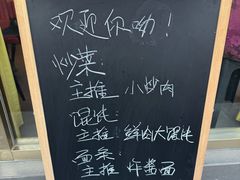 欢迎你呦！
炒菜：
主推 小炒肉
馄饨：
主推 鲜肉大馄饨
面条
主推 炸酱面